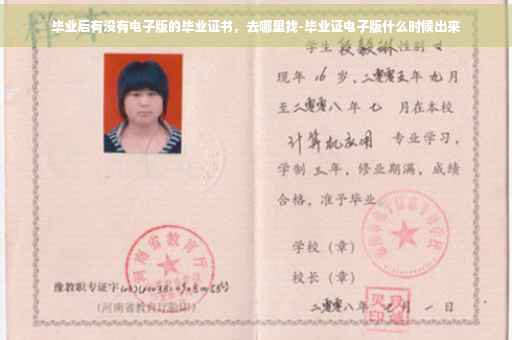 毕业后有没有电子版的毕业证书，去哪里找-毕业证电子版什么时候出来
样本
学生 段毅琳 性别 女
现年 16 岁，二零零五年 九月
至二零零八年 七 月在本校
计算机应用 专业学习，
学制 三年，修业期满，成绩
合格，准予毕业
学校（章）
校长（章）
二零零八年 月 一 日
河南省教育厅
豫教职专证字
（河南省教育厅验印）